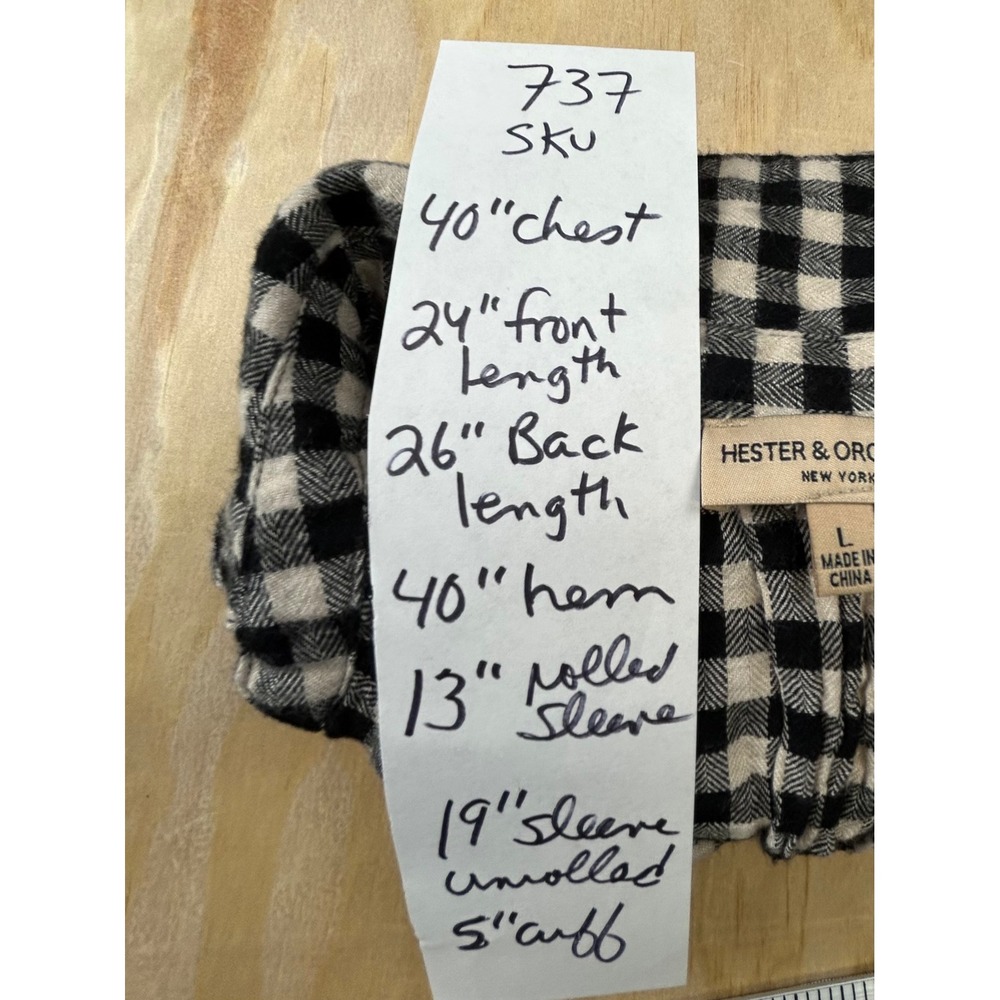 737
SKU
40" chest
24" front
length
26" Back
length
40" hem
13" rolled
sleeve
19" sleeve
unrolled
5" cuff
HESTER & ORC
NEW YORK
L
MADE IN
CHINA